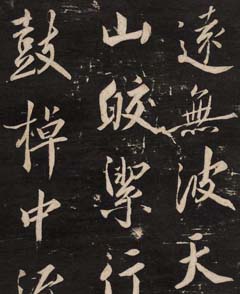 遠無波天
山皎潔行
鼓棹中流